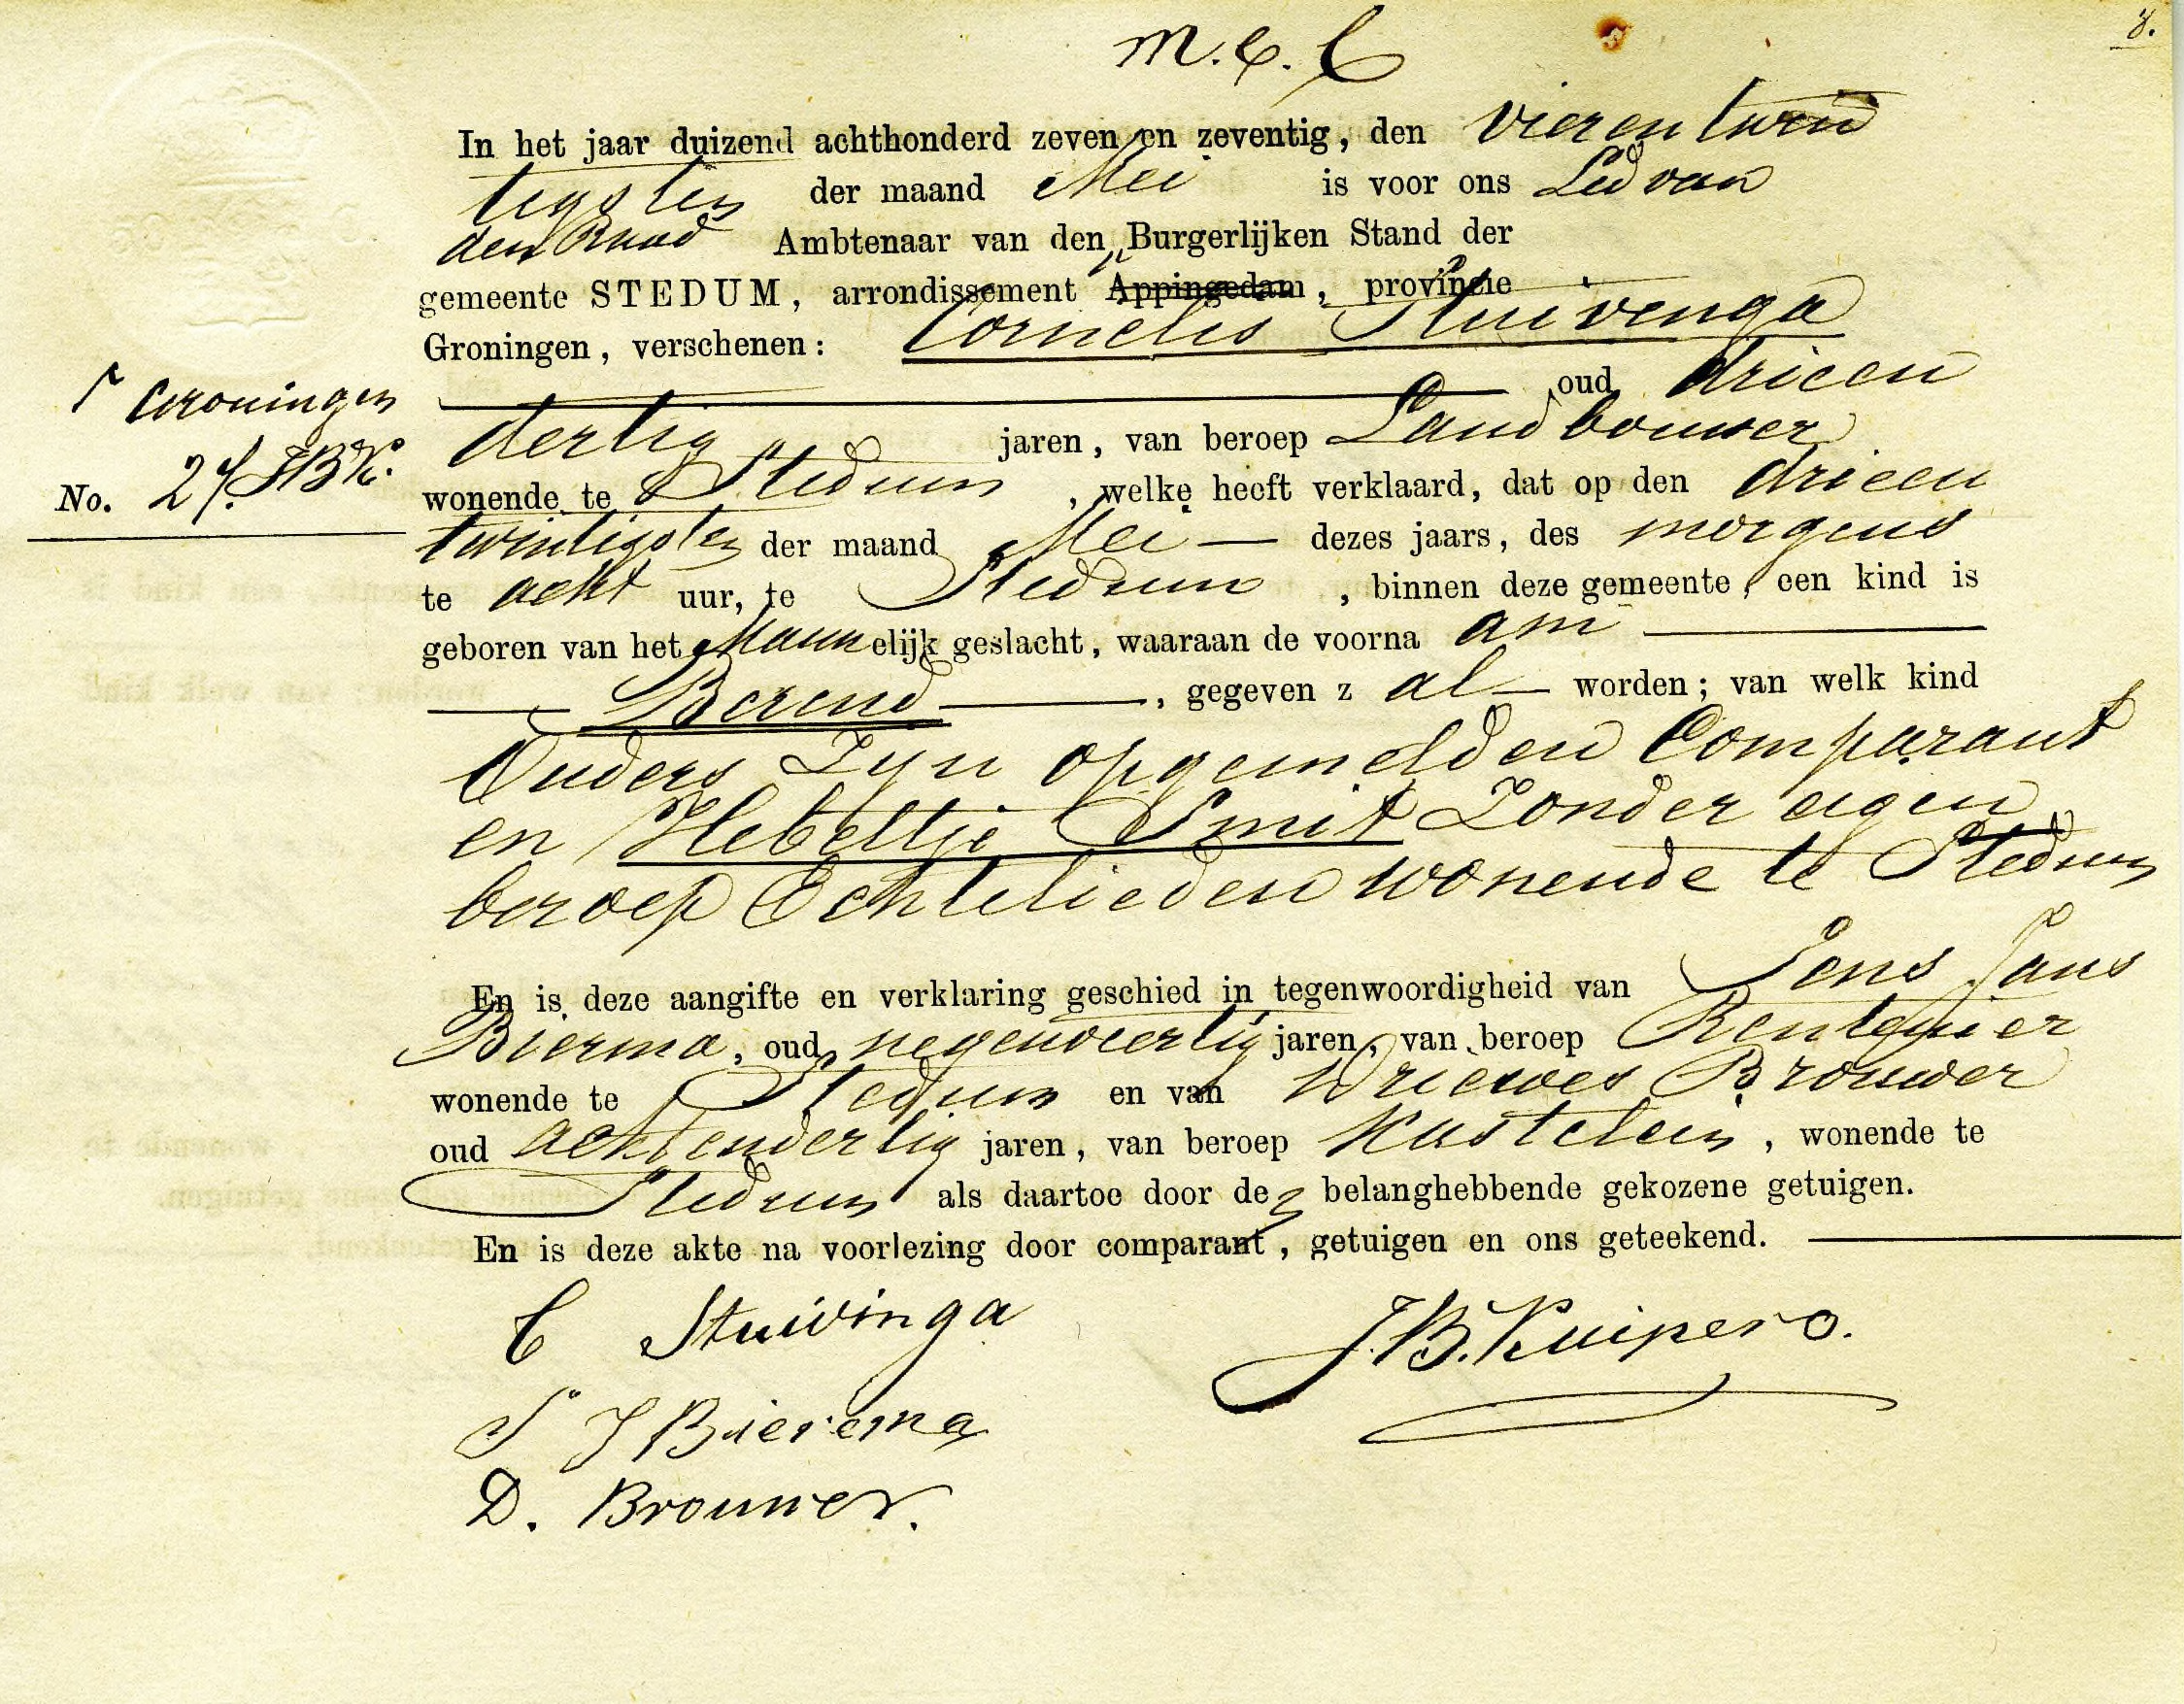 8.
M. C. C
In het jaar duizend achthonderd zeven en zeventig, den vierentwin
tigsten der maand Mei is voor ons Lid van
den Raad Ambtenaar van den Burgerlijken Stand der
gemeente STEDUM, arrondissement Appingedam, provincie
Groningen, verschenen: Cornelis Stuivenga
oud drieen
Groningen
dertig jaren, van beroep Landbouwer
No. 27. JBK.
wonende te Stedum, welke heeft verklaard, dat op den drieen
twintigsten der maand Mei — dezes jaars, des morgens
te acht uur, te Stedum, binnen deze gemeente, een kind is
geboren van het Mannelijk geslacht, waaraan de voorna am —
— Berend —, gegeven z al — worden; van welk kind
Ouders Zyn opgemelden Comparant
en Hebeltje Smit Zonder eigen
beroep Echtelieden wonende te Stedum
En is deze aangifte en verklaring geschied in tegenwoordigheid van Sens Jans
Bierma, oud negenveertig jaren, van beroep Rentenier
wonende te Stedum en van Driewes Brouwer
oud achtendertig jaren, van beroep Kastelein, wonende te
Stedum als daartoe door den belanghebbende gekozene getuigen.
En is deze akte na voorlezing door comparant, getuigen en ons geteekend. —
C Stuivinga
J.B. Kuipers.
S J Bierema
D. Brouwer.